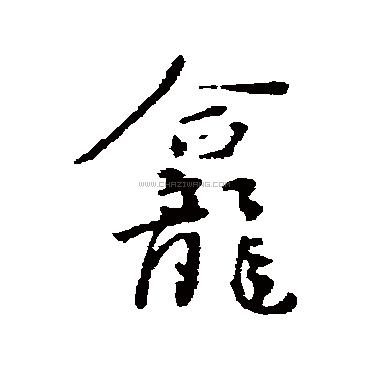 龕
WWW.CHAZIWANG.COM